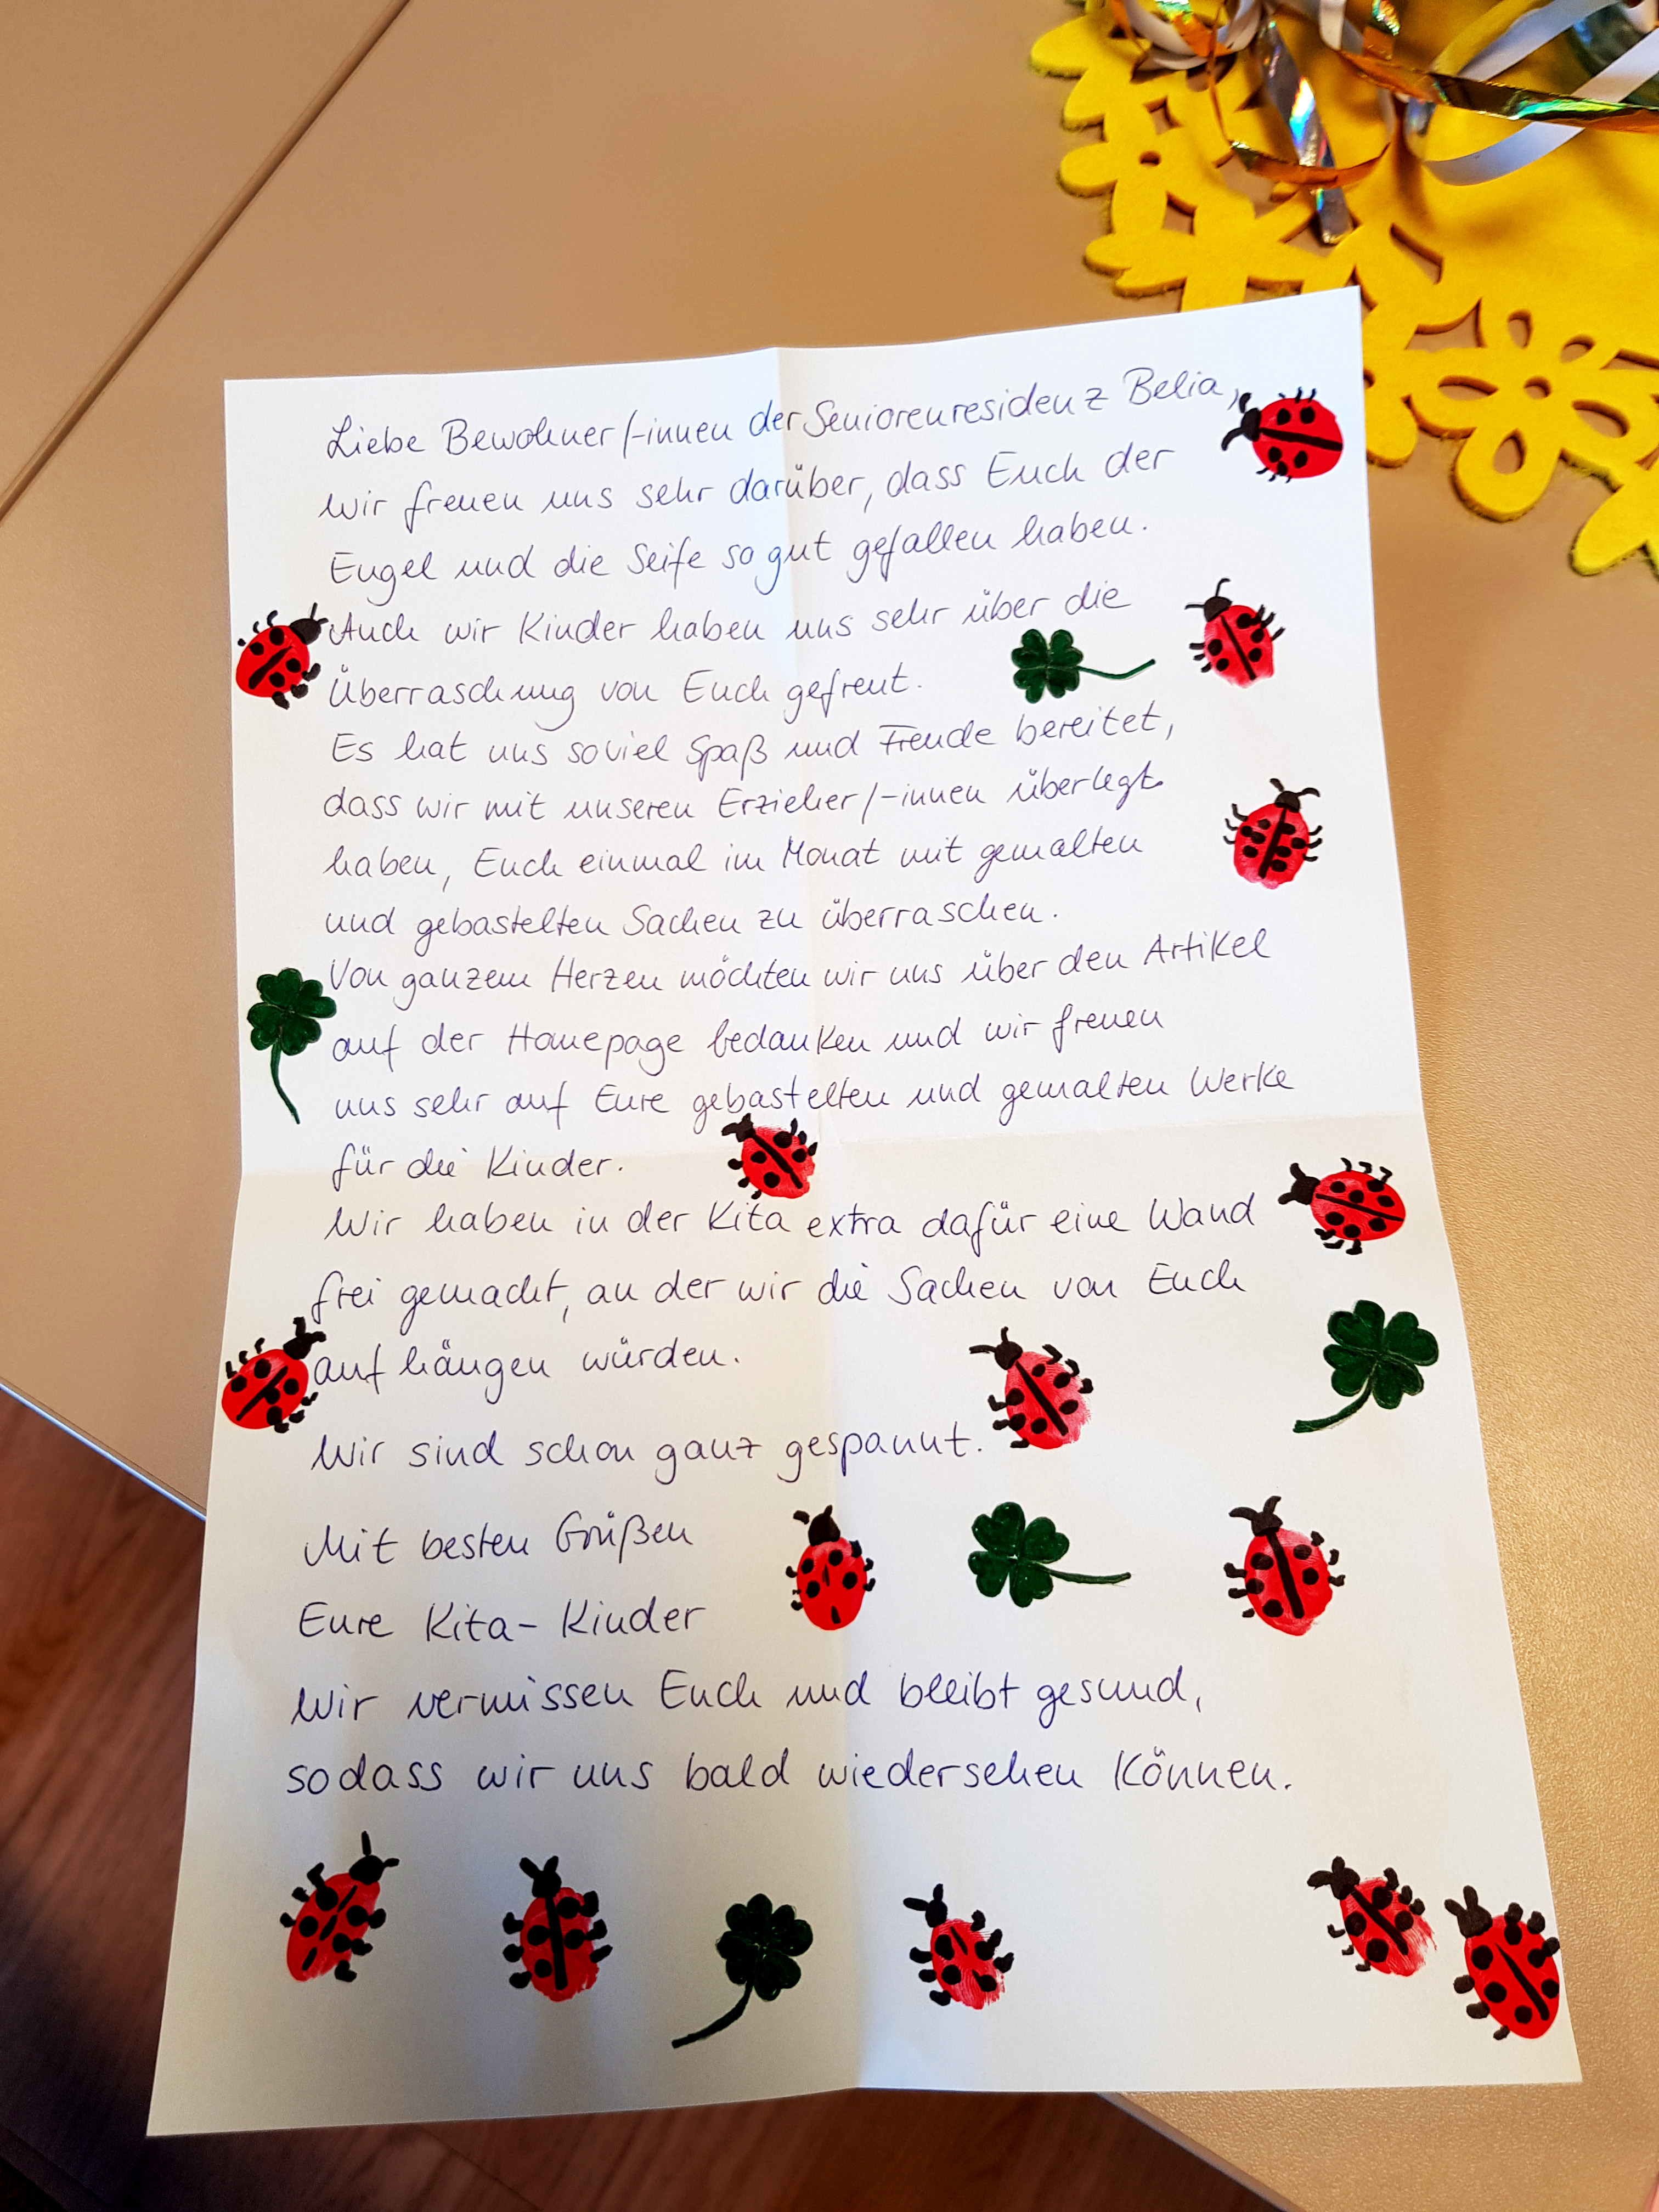 Liebe Bewohner/-innen der Seniorenresidenz Belia,
wir freuen uns sehr darüber, dass Euch der
Engel und die Seife so gut gefallen haben.
Auch wir Kinder haben uns sehr über die
Überraschung von Euch gefreut.
Es hat uns soviel Spaß und Freude bereitet,
dass wir mit unseren Erzieher/-innen überlegt
haben, Euch einmal im Monat mit gemalten
und gebastelten Sachen zu überraschen.
Von ganzem Herzen möchten wir uns über den Artikel
auf der Homepage bedanken und wir freuen
uns sehr auf Eure gebastelten und gemalten Werke
für die Kinder.
Wir haben in der Kita extra dafür eine Wand
frei gemacht, an der wir die Sachen von Euch
aufhängen würden.
Wir sind schon ganz gespannt.
Mit besten Grüßen
Eure Kita-Kinder
Wir vermissen Euch und bleibt gesund,
sodass wir uns bald wiedersehen können.